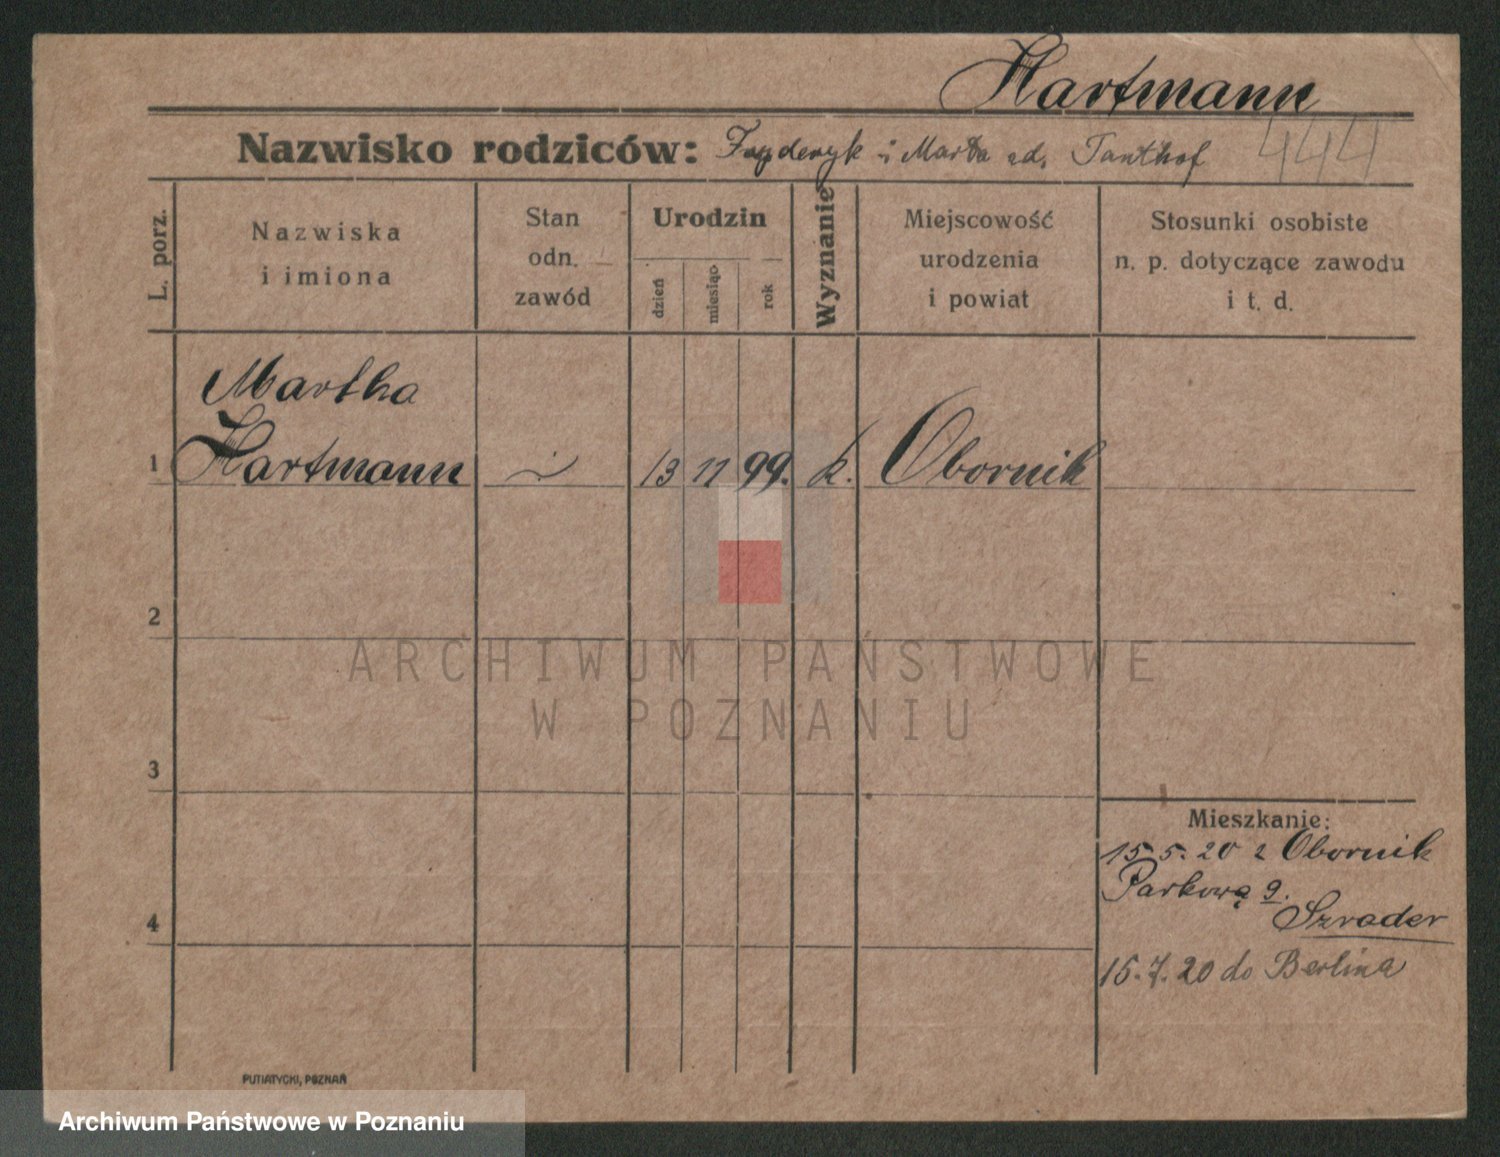 Hartmann
Nazwisko rodziców: Fryderyk i Marta zd. Tanthof 444
L. porz.
Nazwiska
i imiona
Stan
odn.
zawód
Urodzin
dzień
miesiąc
rok
Wyznanie
Miejscowość
urodzenia
i powiat
Stosunki osobiste
n. p. dotyczące zawodu
i t. d.
Martha
1 Hartmann 13 11 99. k. Obornik
2
ARCHIWUM PAŃSTWOWE
W POZNANIU
3
Mieszkanie:
15.5.20 z Obornik
Parkową 9.
4 Szrader
15.7.20 do Berlina
PUTIATYCKI, POZNAŃ
Archiwum Państwowe w Poznaniu